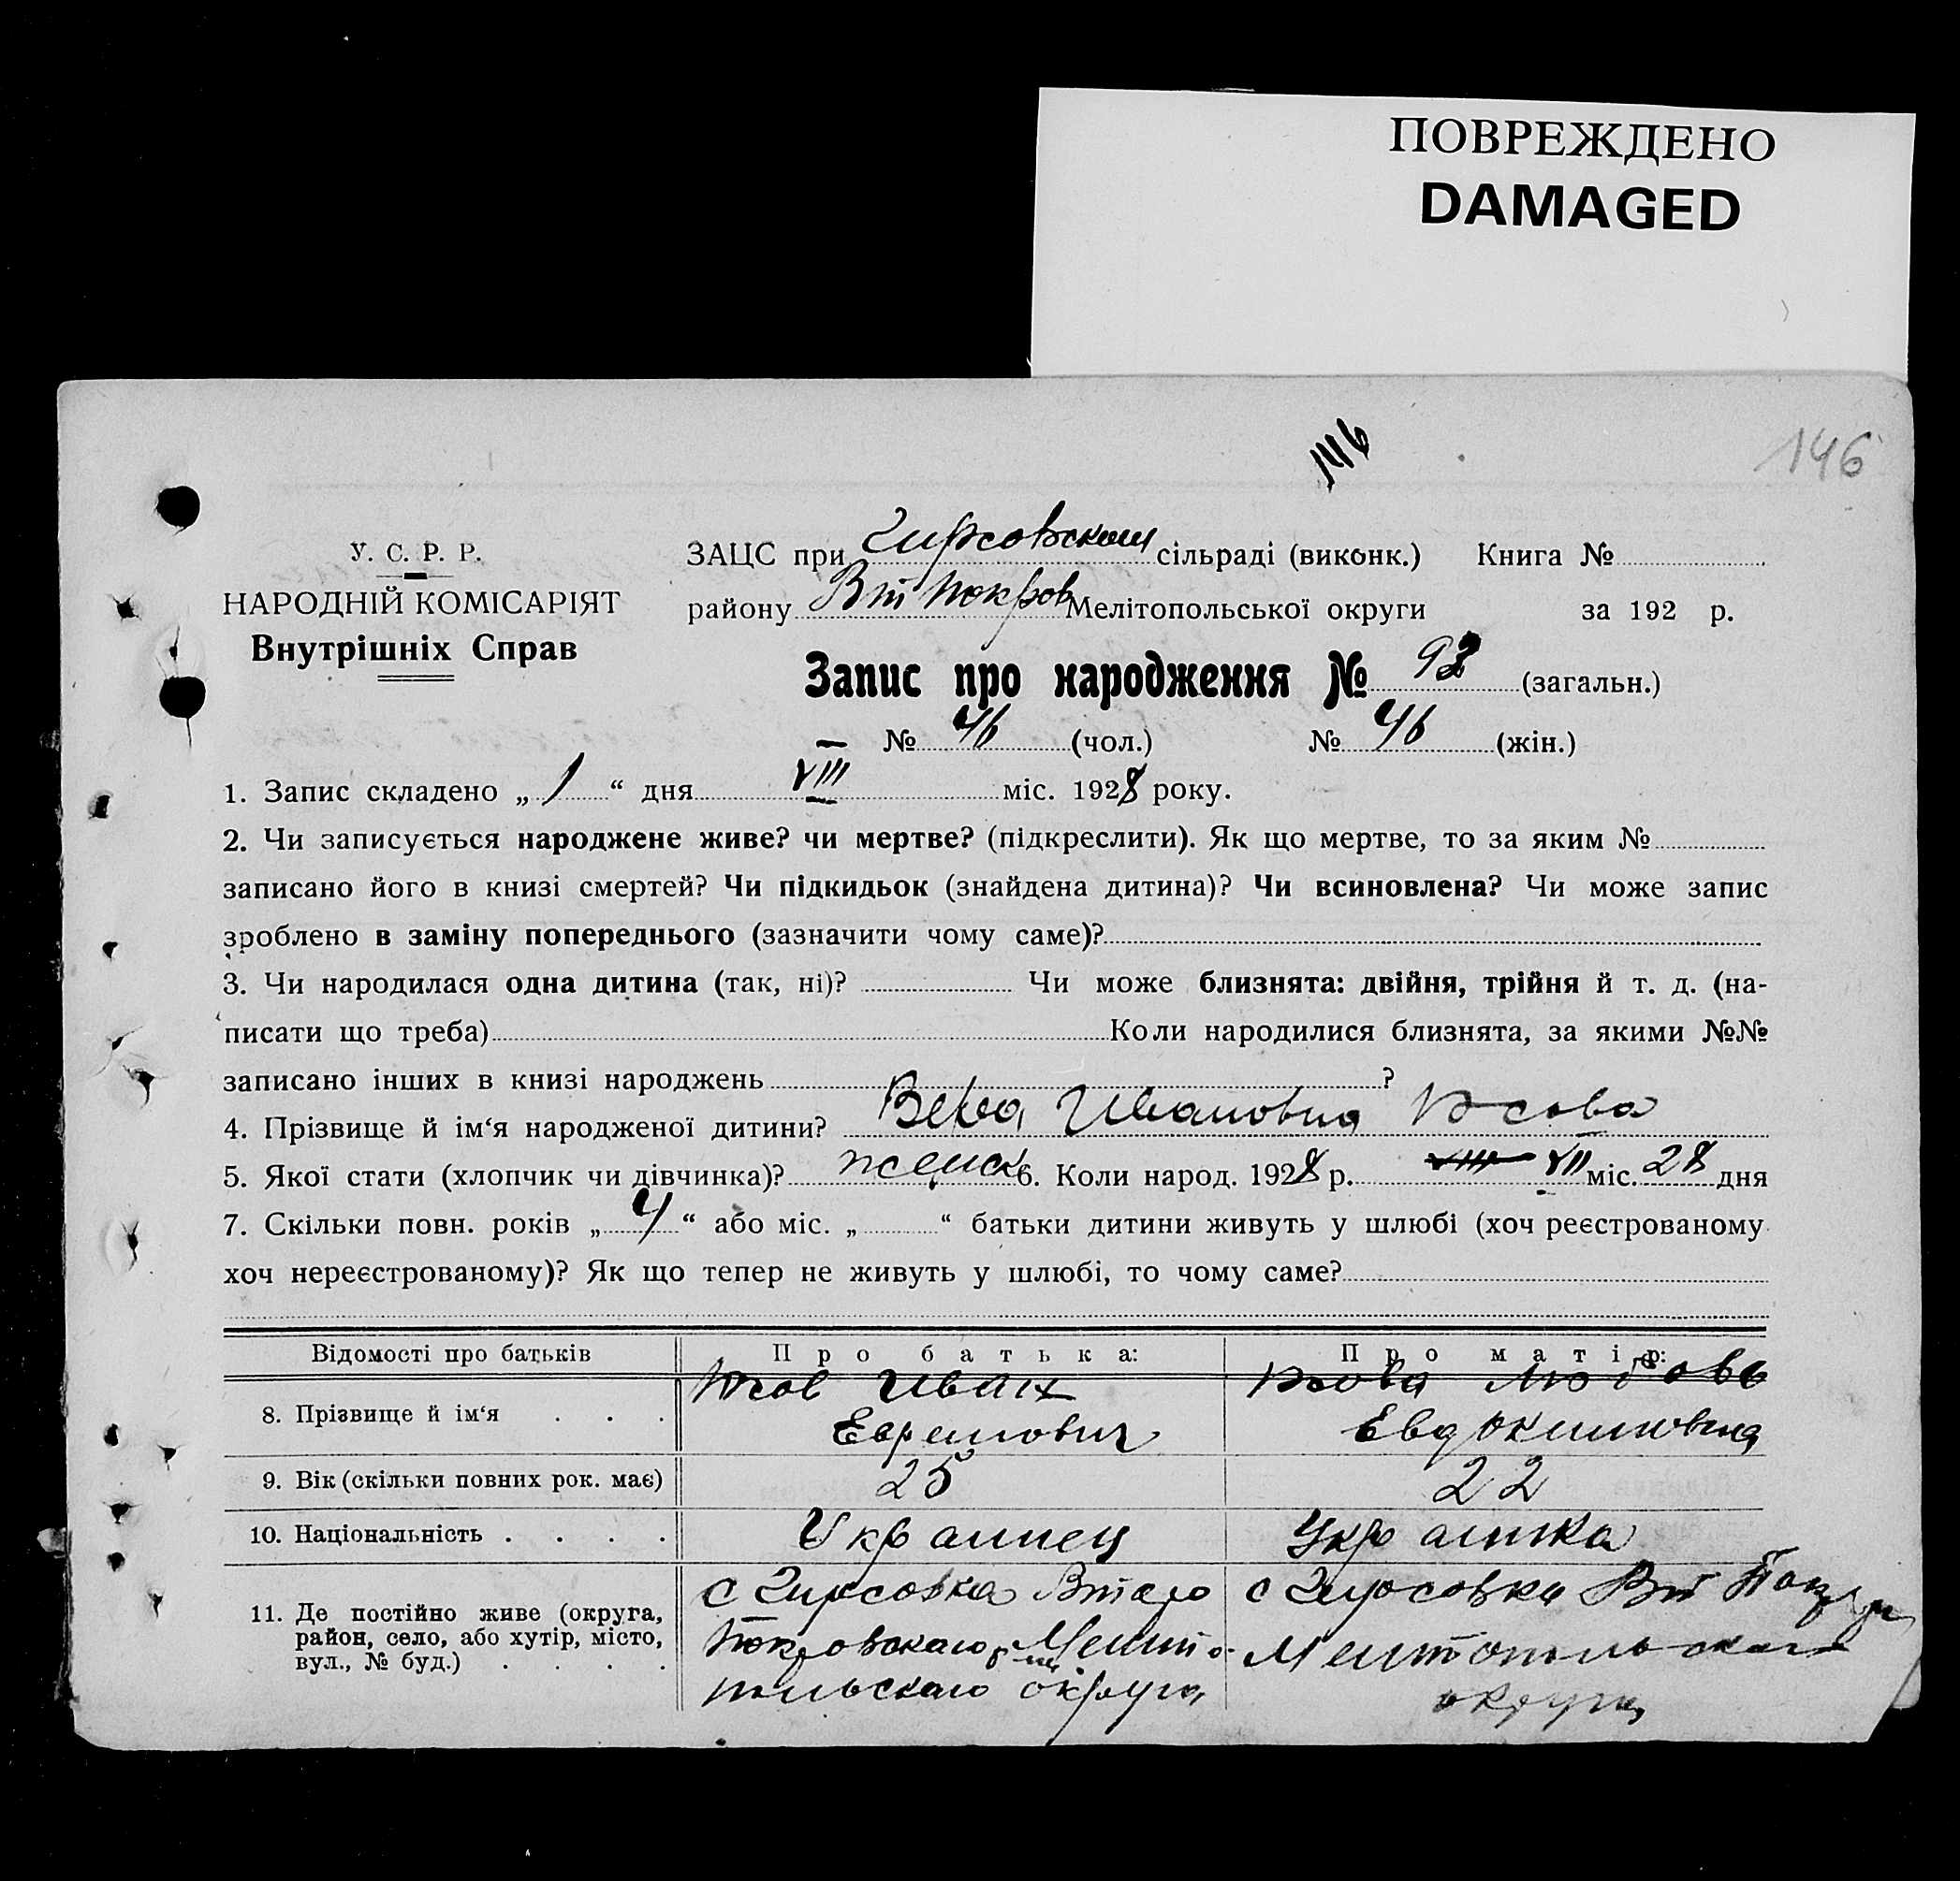 ПОВРЕЖДЕНО
DAMAGED
146
146
У. С. Р. Р.
НАРОДНІЙ КОМІСАРІЯТ
Внутрішніх Справ
ЗАЦС при Гирсовском сільраді (виконк.) Книга №
району Вт Покров Мелітопольської округи за 192 р.
Запис про народження № 92 (загальн.)
— № 46 (чол.) № 46 (жін.)
1. Запис складено „ 1 “ дня VIII міс. 1928 року.
2. Чи записується народжене живе? чи мертве? (підкреслити). Як що мертве, то за яким №
записано його в книзі смертей? Чи підкидьок (знайдена дитина)? Чи всиновлена? Чи може запис
зроблено в заміну попереднього (зазначити чому саме)?
3. Чи народилася одна дитина (так, ні)? Чи може близнята: двійня, трійня й т. д. (на-
писати що треба) Коли народилися близнята, за якими №№
записано інших в книзі народжень ?
4. Прізвище й ім‘я народженої дитини? Вера Ивановна Юсова
5. Якої стати (хлопчик чи дівчинка)? женск 6. Коли народ. 1928 р. VIII VII міс. 28 дня
7. Скільки повн. років „ 4 “ або міс. „ “ батьки дитини живуть у шлюбі (хоч реєстрованому
хоч нереєстрованому)? Як що тепер не живуть у шлюбі, то чому саме?
Відомості про батьків Про батька: Про матір:
8. Прізвище й ім‘я . . . Юсов Иван Юсова Любовь
Ефремович Евдокимовна
9. Вік (скільки повних рок. має) 25 22
10. Національність . . . . Украинец Украинка
11. Де постійно живе (округа, район, село, або хутір, місто, вул., № буд.) . . . .
с Гирсовка Втаро
Покровскаго р-на Мелито-
польскаго округа
с Гирсовка Вт Покр
Мелитопольскаго
округа